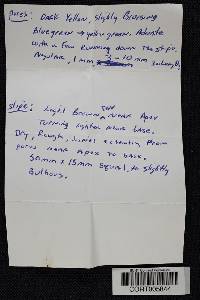 Pores: Dark Yellow, slightly Browning
bluegreen → yellow green. Adnate
with a few running down the stipe.
Angular, 1 mm
stipe: Light Brown near Apex
turning lighter near base.
Dry, Rough, lines extending from
pores near apex to base.
50mm x 15mm Equal, to slightly
CORT005844